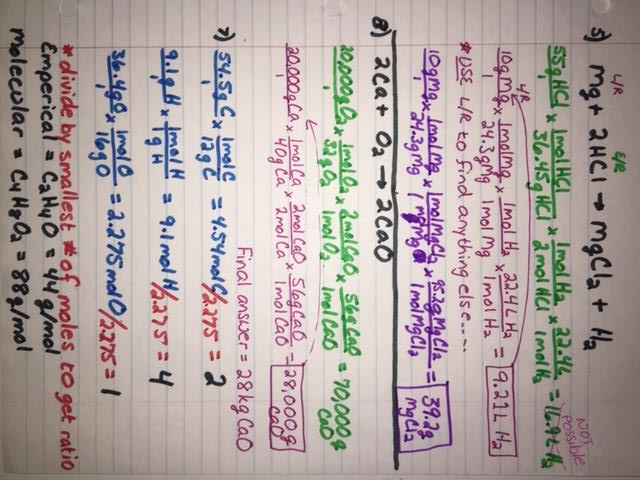 L/R L/R
5) mg + 2HCl → mgCl₂ + H₂
NOT possible
55gHCl/1 × 1molHCl/36.45gHCl × 1molH₂/2molHCl × 22.4L/1molH₂ = 16.9L H₂
L/R
10gmg/1 × 1molmg/24.3gmg × 1molH₂/1molmg × 22.4LH₂/1molH₂ = 9.21L H₂
*USE L/R to find anything else....
10gmg/1 × 1molmg/24.3gmg × 1molmgCl₂/1molmg × 95.2gmgCl₂/1molmgCl₂ = 39.2g mgCl₂
8) 2Ca + O₂ → 2CaO
20,000g × 1molO₂/32gO₂ × 2molCaO/1molO₂ × 56gCaO/1molCaO = 70,000g CaO
20,000gCa/1 × 1molCa/40gCa × 2molCaO/2molCa × 56gCaO/1molCaO = 28,000g CaO
Final answer = 28kg CaO
7) 54.5gC/1 × 1molC/12gC = 4.54molC/2.275 = 2
9.1gH/1 × 1molH/1gH = 9.1molH/2.275 = 4
36.4gO/1 × 1molO/16gO = 2.275molO/2.275 = 1
*divide by smallest # of moles to get ratio
Emperical = C₂H₄O = 44g/mol
molecular = C₄H₈O₂ = 88g/mol